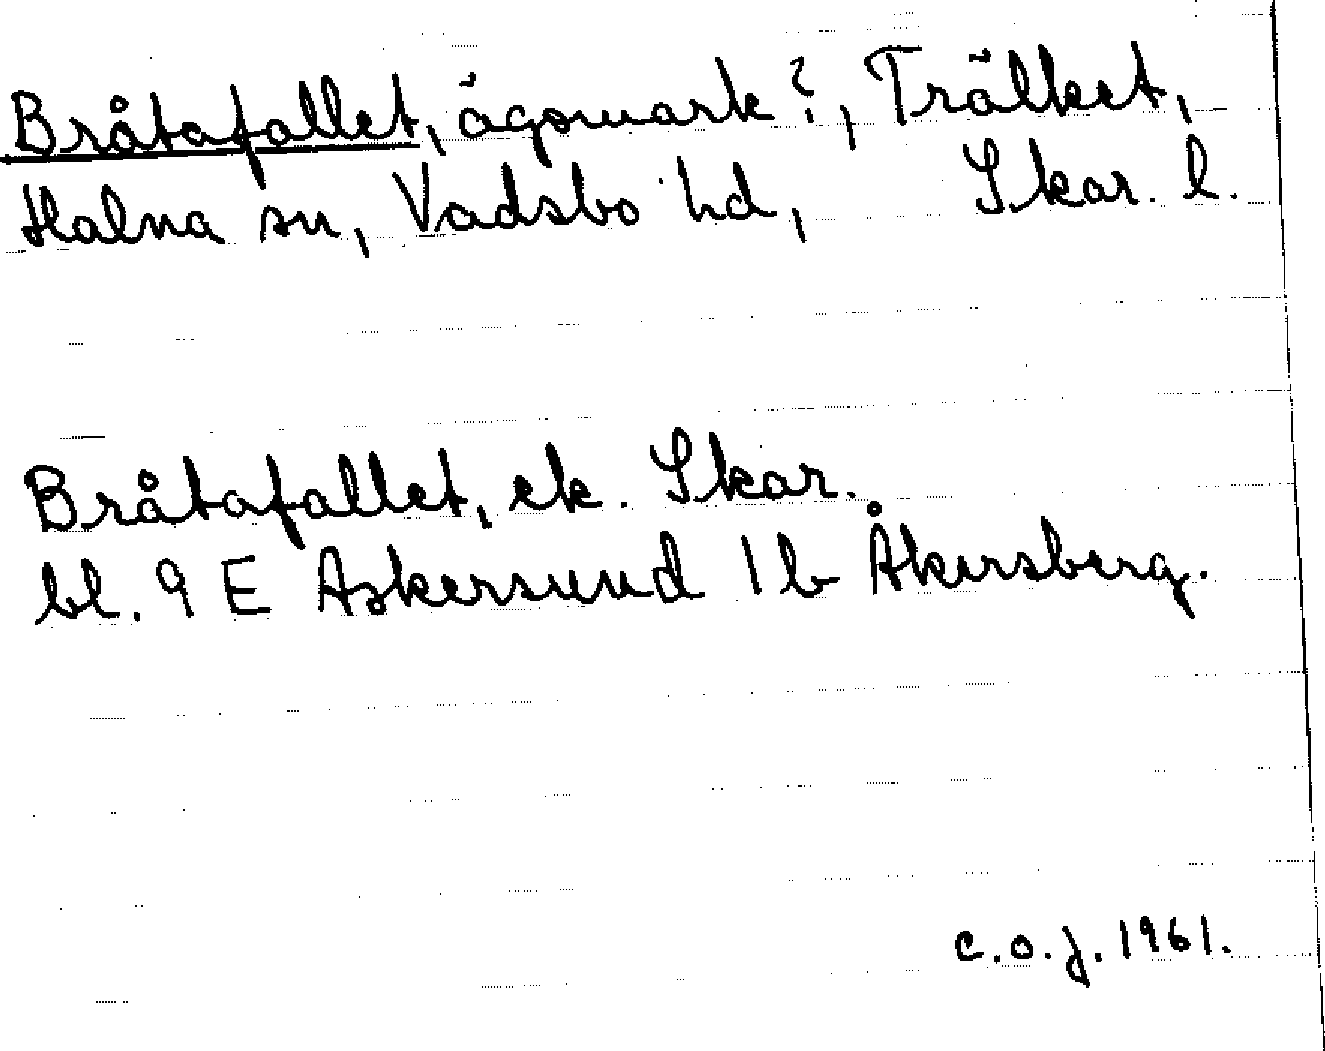 Bråtafallet, ägomark?, Trälket,
Halna sn, Vadsbo hd, Skar. l.
Bråtafallet, ek. Skar.
bl. 9 E Askersund 1b Åkersberg.
C.O.J. 1961.